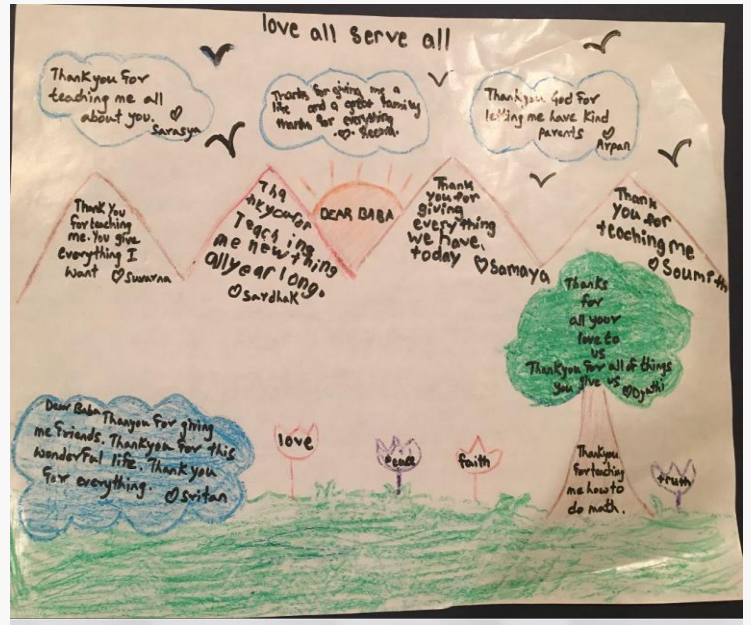 love all serve all
Thankyou for
teaching me all
about you.
Sarasya
Thanks for giving me a
life and a great family
thanks for everything
Thankyou God for
letting me have kind
parents
Arpan
Thank You
for teaching
me. You give
everything I
want Suvarna
Tha
nkyou for
Teaching
me new thing
all year long.
Sardhak
DEAR BABA
Thank
you for
giving
everything
we have,
today
Samaya
Thank
you for
teaching me
Soumith
Thanks
for
all your
love to
us
Thankyou for all of things
you give us Dyathi
Thankyou
for teaching
me how to
do math.
Dear Baba Thanyou for giving
me friends. Thankyou for this
wonderful life. Thank you
for everything.
Sritan
love
peace
faith
truth